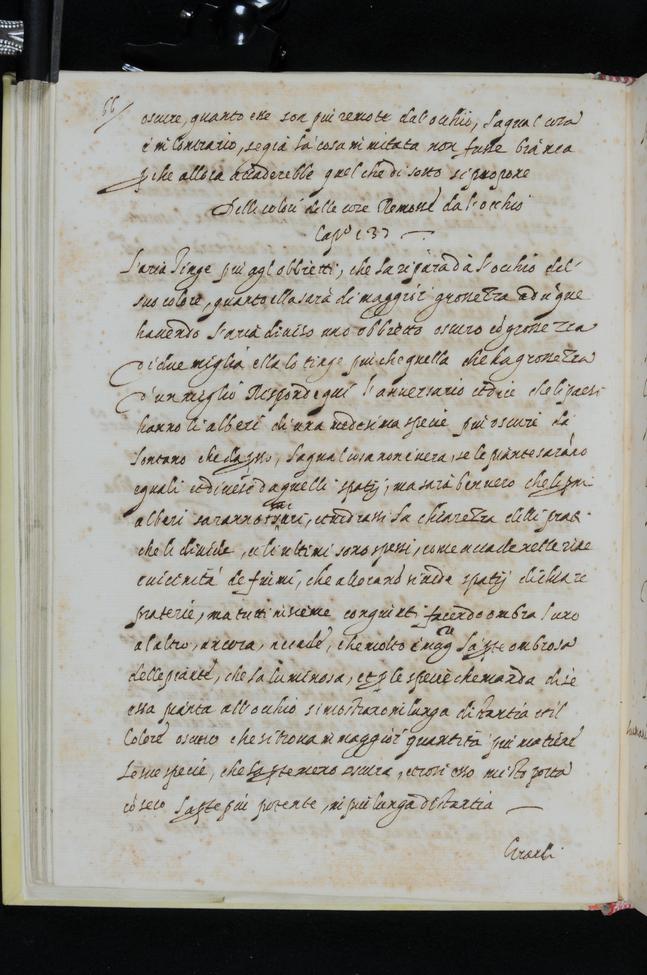 66/
oscure, quanto che son piu remote dal'occhio, la qual cosa
è in contrario, se già la cosa inimitata non fusse bianca
p che allora accaderebbe quel che di sotto si propone
Delli colori delle cose Remosse dal'occhio
Capº 137
L'aria tinge piu agl'obbietti, che la separa dà l'ochio del
suo colore, quanto ella sarà di maggior grossezza adūque
havendo l'aria diviso uno obbietto oscuro cō grossezza
di due miglia ella lo tinge piu che quella che ha grossezza
d'un miglio Risponde qui l'avversario et dice che li paesi
hanno li alberi di una medesima specie piu oscuri dà
lontano che dapsso, la qual cosa non è vera, se le piante saranno
eguali et divise da quelli spatij, ma sarà ben vero che li pmi
alberi saranno rari, et vedrassi la chiarezza delli prati
che li divide, e li ultimi sono spessi, come accade nelle rive
e vicinità de fiumi, che allora nō si vede spatij di chiare
praterie, ma tutti insieme congiunti facendo ombra l'uno
a l'altro, ancora, accade, che molto è magʳ la pte ombrosa
delle piante, che la luminosa, et p le specie che manda di sè
essa pianta all'occhio si mostrano in lunga distantia et il
Colore oscuro che si trova in maggior quantità piu mantiene
le sue specie, che la pte meno oscura, et così esso misto porta
cō seco la pte piu potente, in piu lunga distantia